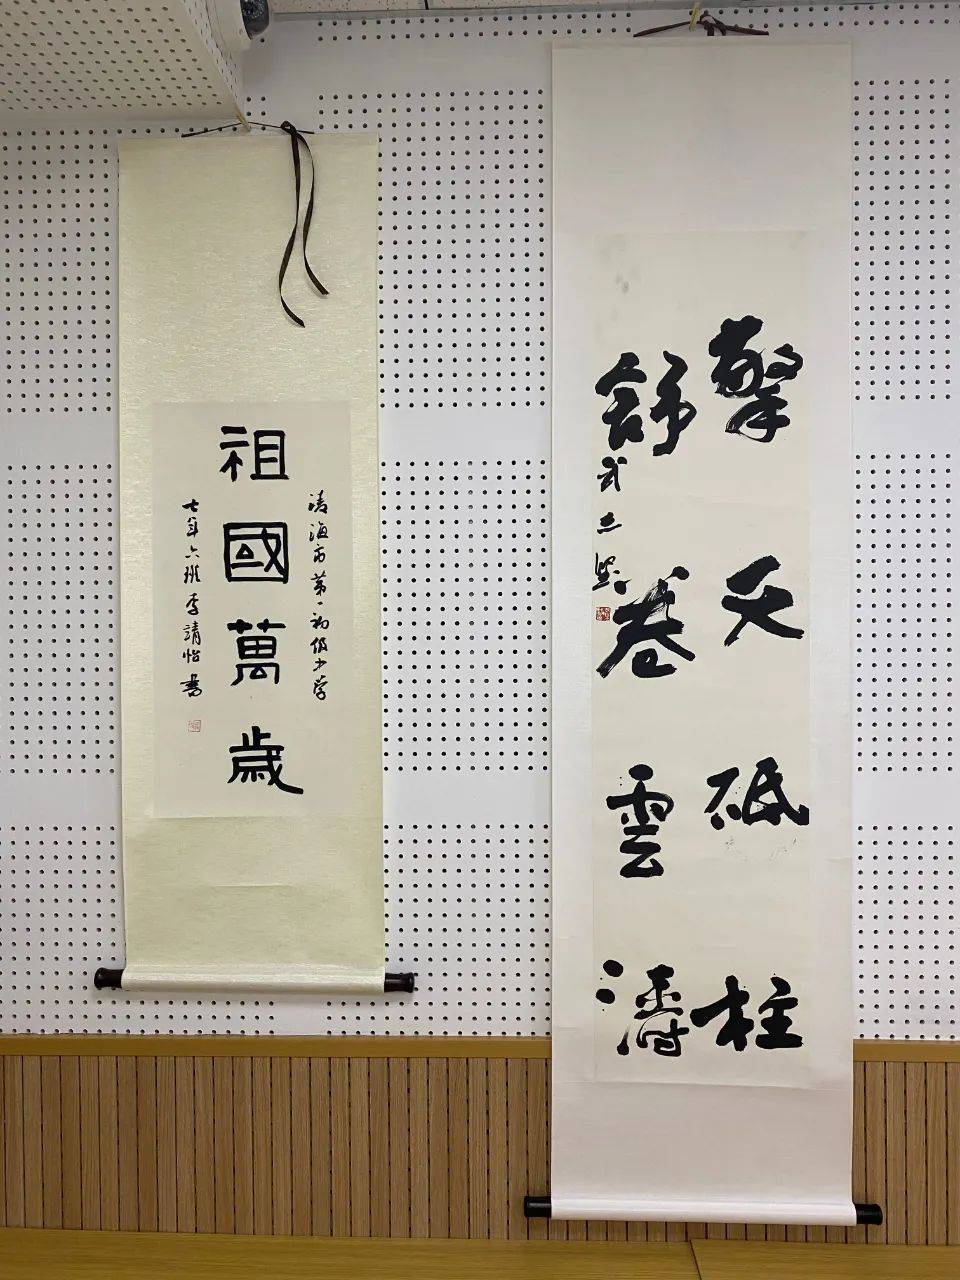 凌海市第一初级中学
祖國萬歲
七年六班李靖怡書
擎天砥柱
舒卷雲濤
武